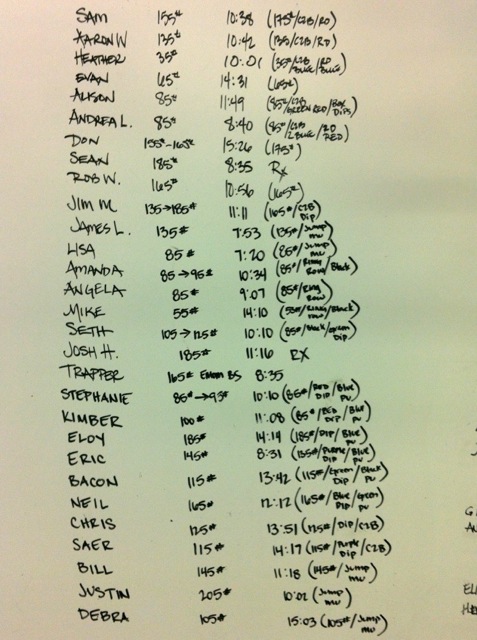 SAM 155# 10:38 (175#/C2B/RD)
AARON W 135# 10:42 (135/C2B/RD)
HEATHER 35# 10:01 (35#/C2B/RD
EVAN 65# 14:31 (65#)
ALISON 85# 11:49 (85#/C2B/GREEN RED/BOX DIPS)
ANDREA L. 85# 8:40 (85#/C2B/2 BLUE/RED)
DON 155#-165# 15:26 (175#)
SEAN 185# 8:35 Rx
ROB W. 165# 10:56 (165#)
JIM M 135→185# 11:11 (165#/C2B DIP)
JAMES L. 135# 7:53 (135#/Jump mu)
LISA 85# 7:20 (85#/Jump mu)
AMANDA 85→95# 10:34 (85#/Ring Row/Black)
ANGELA 85# 9:07 (85#/Ring Row)
MIKE 55# 14:10 (55#/Ring row/Black)
SETH 105→125# 10:10 (85#/Black/Green Dip)
JOSH H. 185# 11:16 RX
TRAPPER 165# EMOM BS 8:35
STEPHANIE 85#→95# 10:10 (85#/RED DIP/Blue PU)
KIMBER 100# 11:08 (85#/RED DIP/Blue PU)
ELOY 185# 14:19 (185#/DIP/Blue PU)
ERIC 145# 8:31 (135#/Purple DIP/Blue PU)
BACON 115# 13:42 (115#/Green Dip/Black PU)
NEIL 165# 12:12 (165#/Blue Dip/Green PU)
CHRIS 125# 13:51 (125#/DIP/C2B)
SAER 115# 14:17 (115#/Purple Dip/C2B)
BILL 145# 11:18 (145#/Jump mu)
JUSTIN 205# 10:02 (Jump mu)
DEBRA 105# 15:03 (105#/Jump mu)